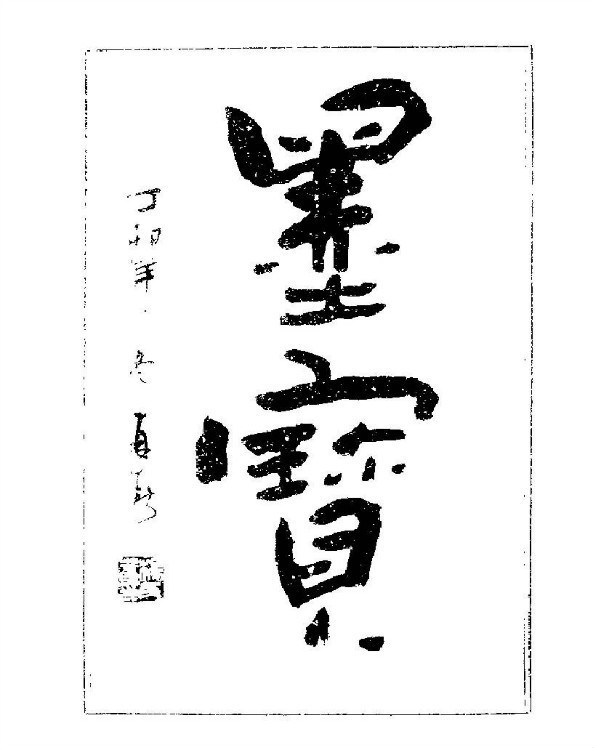 墨寶
丁卯年 冬